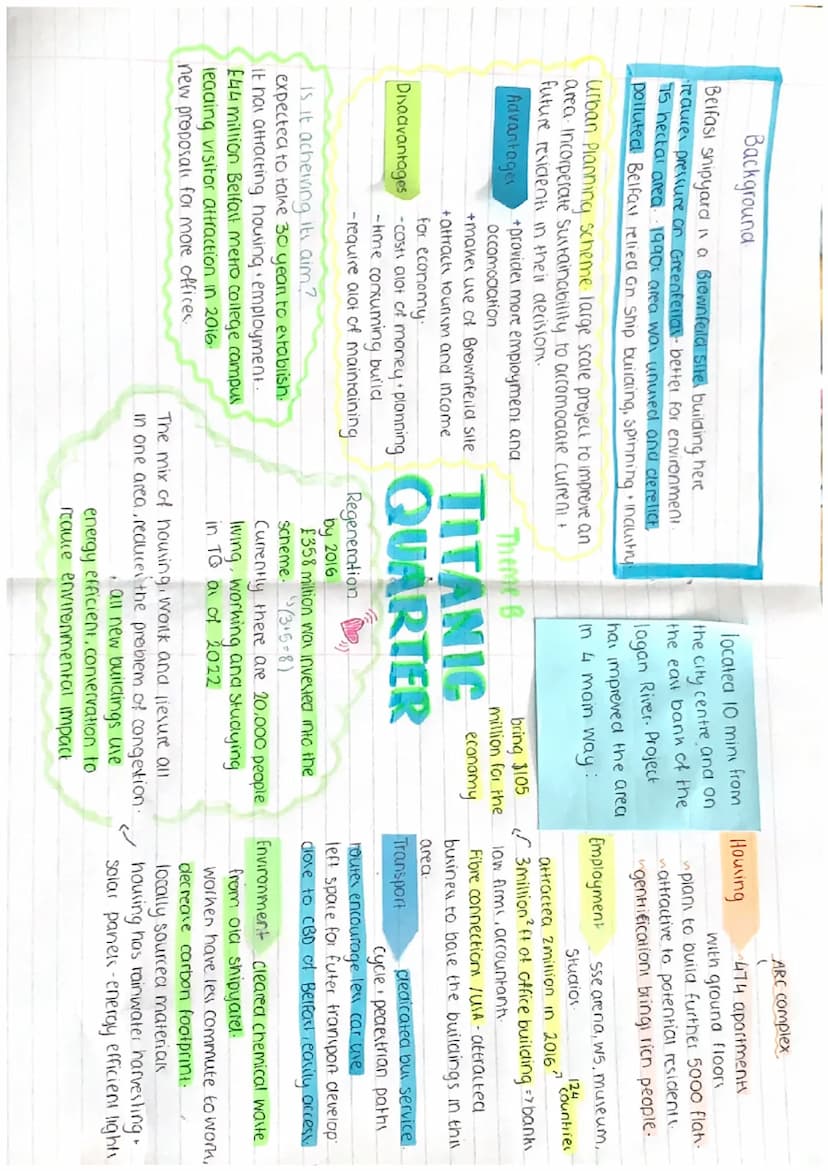 Background
Belfast shipyard is a Brownfeild site, building here
reduces pressure on Greenfeilds - better for environment.
75 hectar area. 1990s area was unused and derelict,
polluted Belfast relied on ship building, spinning + industry
Urban Planning scheme: large scale project to improve an
area. Incorperate Sustainability to accomodate current +
future residents in their decisions.
Advantages
+provides more employment and
accomodation
+makes use of Brownfeild site
+attracts tourism and income
for economy.
Disadvantages
- costs alot of money + planning
- time consuming build
- require alot of maintaining
Is it acheiving its aim?
expected to take 30 years to establish.
It has attracting housing + employment.
£44 million Belfast metro college campus
leading visitor attraction in 2016
new proposals for more offices.
Theme B
TITANIC
QUARTER
Regeneration
by 2016
£358 million was invested into the
scheme. (3+5=8)
Currently there are 20,000 people
living, working and studying
in TQ as of 2022
The mix of housing, work and liesure all
in one area, reduces the problem of congestion.
, all new buildings use
energy efficient, conservation to
reduce environmental impact
located 10 mins from
the city centre, and on
the east bank of the
lagan River. Project
has improved the area
in 4 main ways:
ARC complex
Housing
~474 apartments
with ground floors
~plans to build further 5000 flats.
~attractive to potential residents.
~gentrification: brings rich people.
Employment
sse arena, W5, museum,
studios.
attracted 2 million in 2016
124 countries
bring $105
million for the
economy
3million² ft of office building => banks
law firms, accountants.
Fibre connections /USA - attracted
business to base the buildings in this
area.
Transport
dedicated bus service.
cycle + pedestrian paths
routes encourage less car use
left space for futer transport develop.
close to CBD of Belfast, easily access
Environment
cleared chemical waste
from old shipyard.
workers have less commute to work,
decrease carbon footprint.
locally sourced materials
housing has rainwater harvesting +
solar panels - energy efficient lights